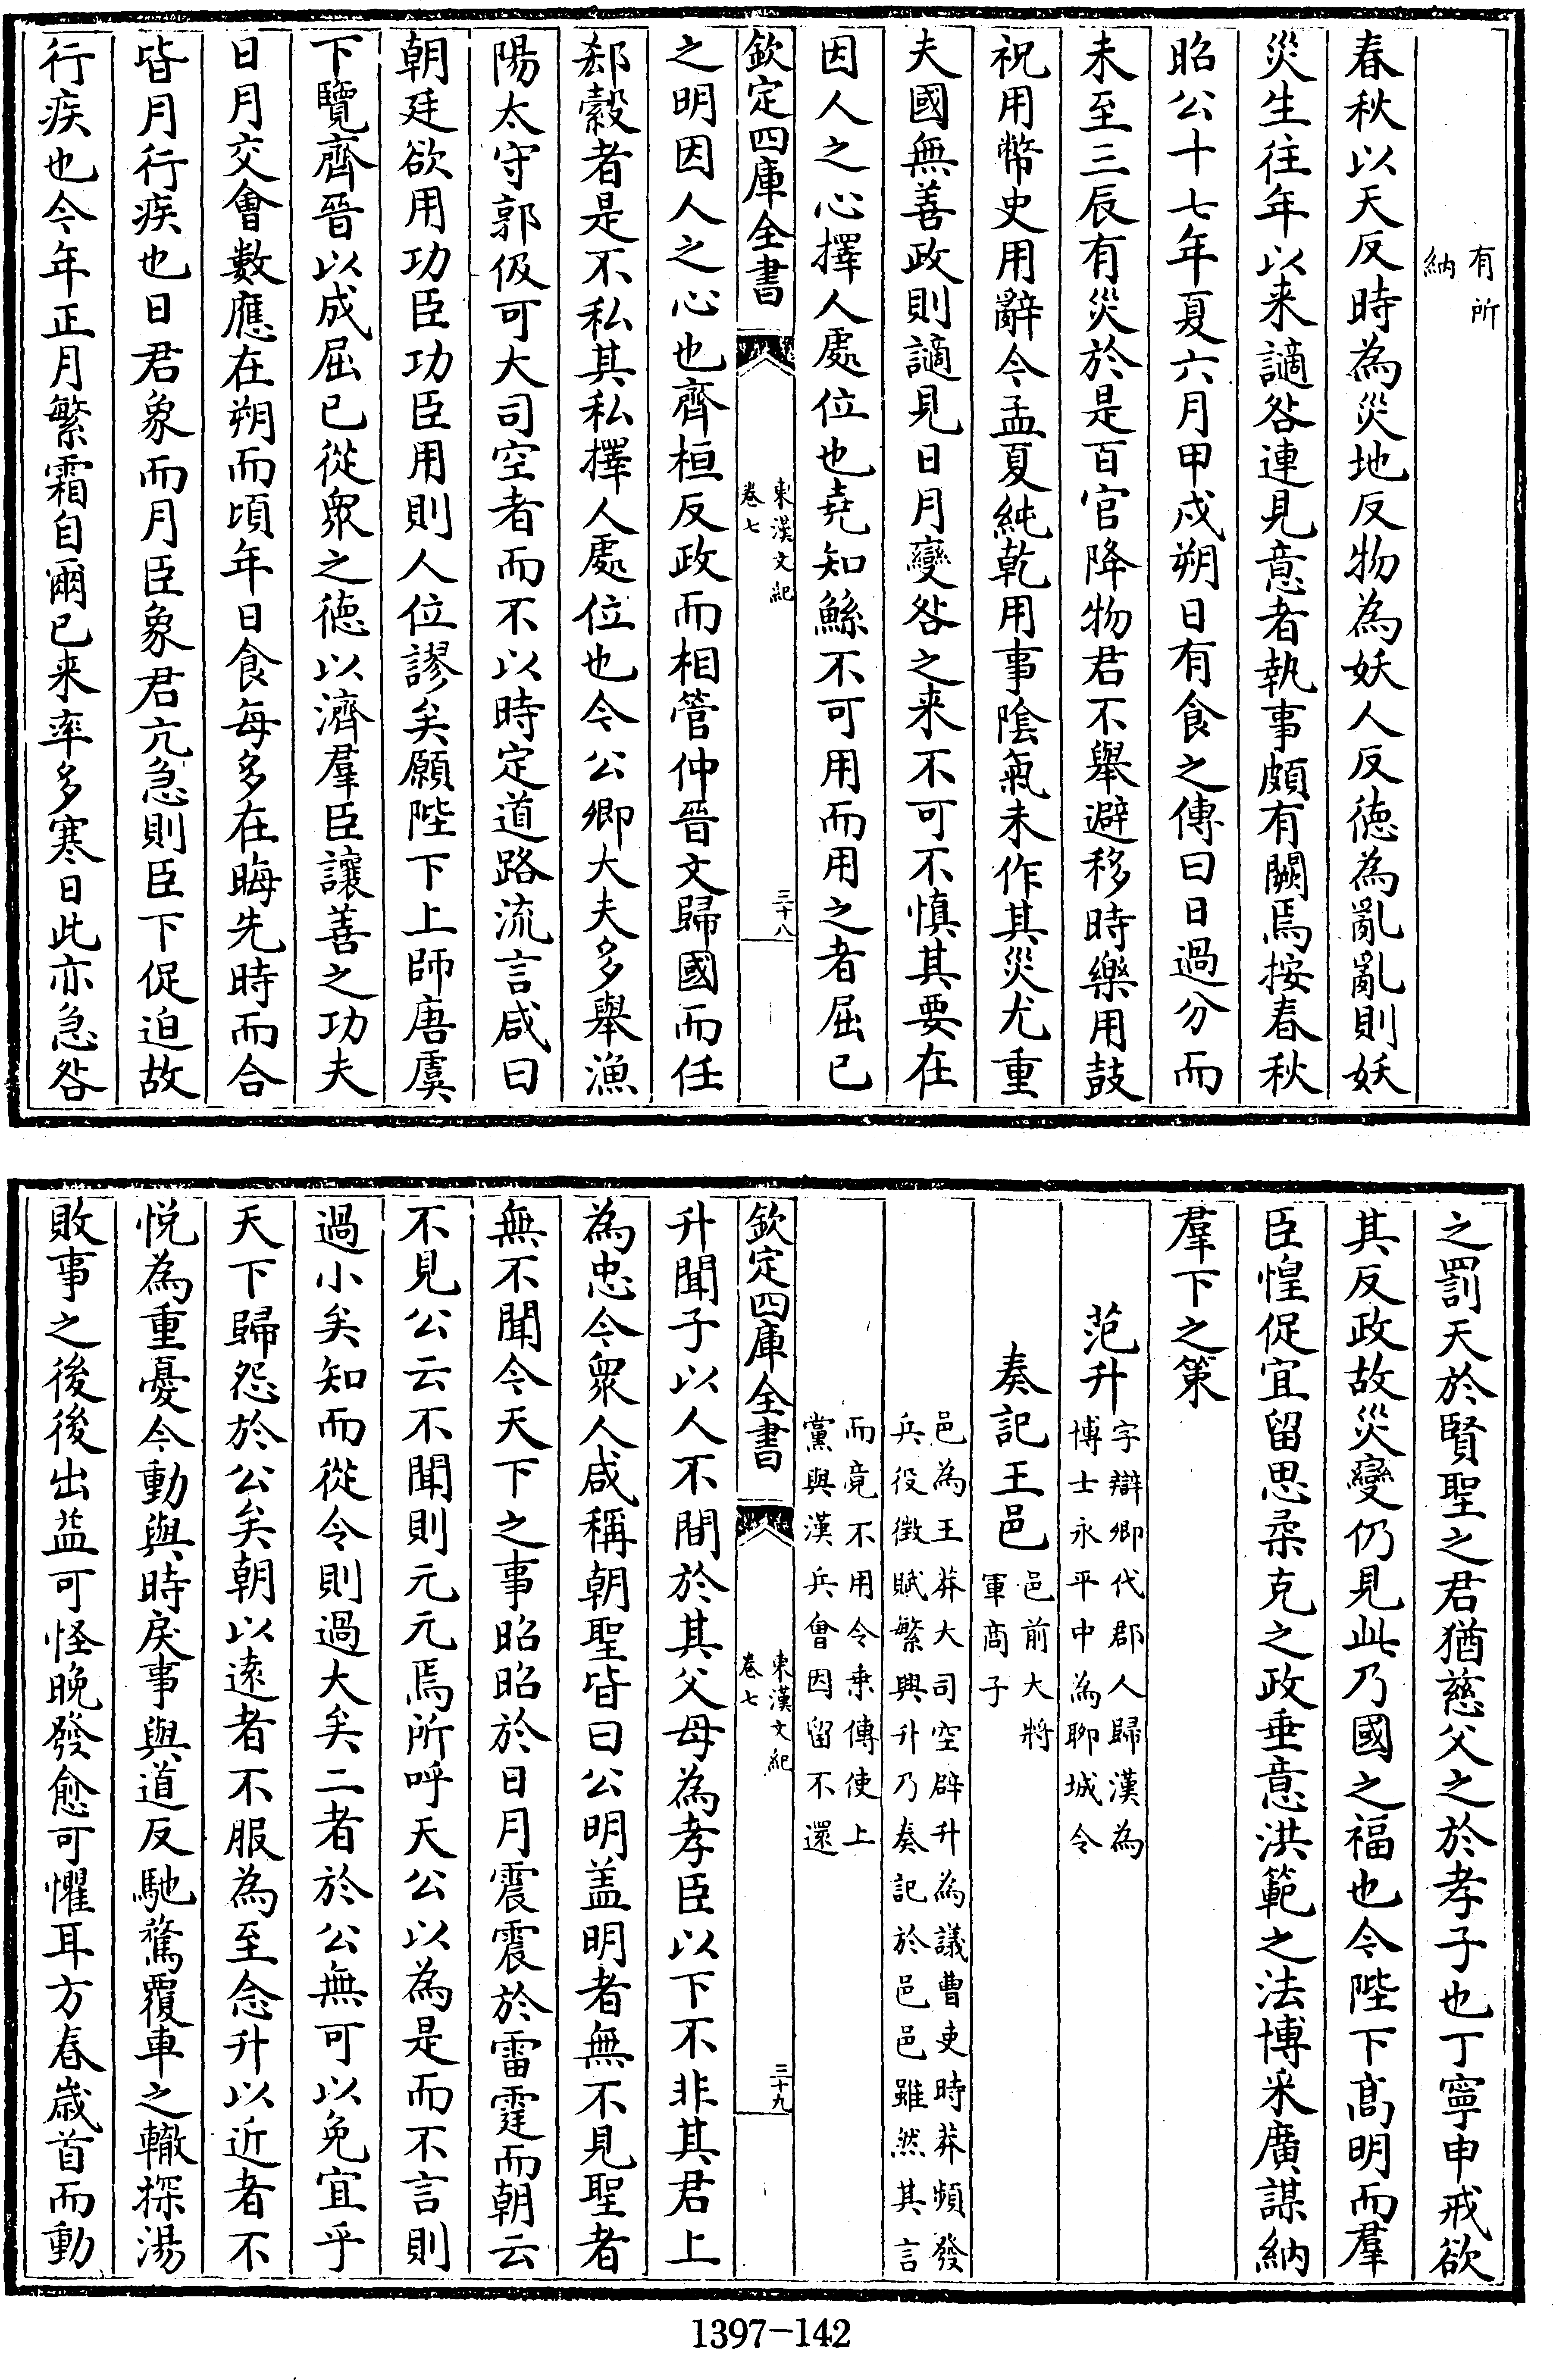 有所
納
春秋以天反時為災地反物為妖人反徳為亂亂則妖
災生往年以来謫咎連見意者執事頗有闕焉按春秋
昭公十七年夏六月甲戍朔日有食之傳曰日過分而
未至三辰有災於是百官降物君不舉避移時樂用鼓
祝用幣史用辭今孟夏純乾用事陰氣未作其災尤重
夫國無善政則謫見日月變咎之来不可不慎其要在
因人之心擇人處位也堯知鯀不可用而用之者屈已
欽定四庫全書
東漢文紀
卷七
三十八
之明因人之心也齊桓反政而相管仲晉文歸國而任
郄縠者是不私其私擇人處位也今公卿大夫多舉漁
陽太守郭伋可大司空者而不以時定道路流言咸曰
朝廷欲用功臣功臣用則人位謬矣願陛下上師唐虞
下覽齊晉以成屈已從衆之徳以濟羣臣讓善之功夫
日月交會數應在朔而頃年日食每多在晦先時而合
皆月行疾也日君象而月臣象君亢急則臣下促迫故
行疾也今年正月繁霜自爾已来率多寒日此亦急咎
之罰天於賢聖之君猶慈父之於孝子也丁寧申戒欲
其反政故災變仍見此乃國之福也今陛下髙明而羣
臣惶促宜留思柔克之政垂意洪範之法博采廣謀納
羣下之策
范升
字辯卿代郡人歸漢為
博士永平中為聊城令
奏記王邑
邑前大將
軍商子
邑為王莽大司空辟升為議曹吏時莽頻發
兵役徴賦繁興升乃奏記於邑邑雖然其言
而竟不用令乗傳使上
黨與漢兵會因留不還
欽定四庫全書
東漢文紀
卷七
三十九
升聞子以人不間於其父母為孝臣以下不非其君上
為忠今衆人咸稱朝聖皆曰公明盖明者無不見聖者
無不聞今天下之事昭昭於日月震震於雷霆而朝云
不見公云不聞則元元焉所呼天公以為是而不言則
過小矣知而從令則過大矣二者於公無可以免宜乎
天下歸怨於公矣朝以逺者不服為至念升以近者不
悦為重憂今動與時戾事與道反馳騖覆車之轍探湯
敗事之後後出益可怪晚發愈可懼耳方春歳首而動
1397-142